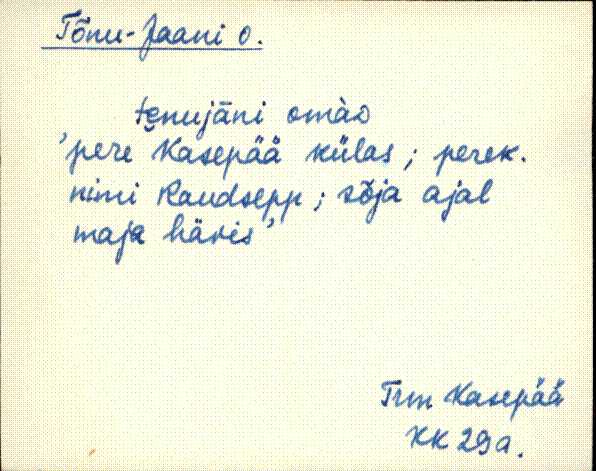 Tõnu-Jaani o.
te̮nujāni omàᴅ
'pere Kasepää külas; perek.
nimi Raudsepp; sõja ajal
maja hävis'
Trm Kasepää
KK 29a.